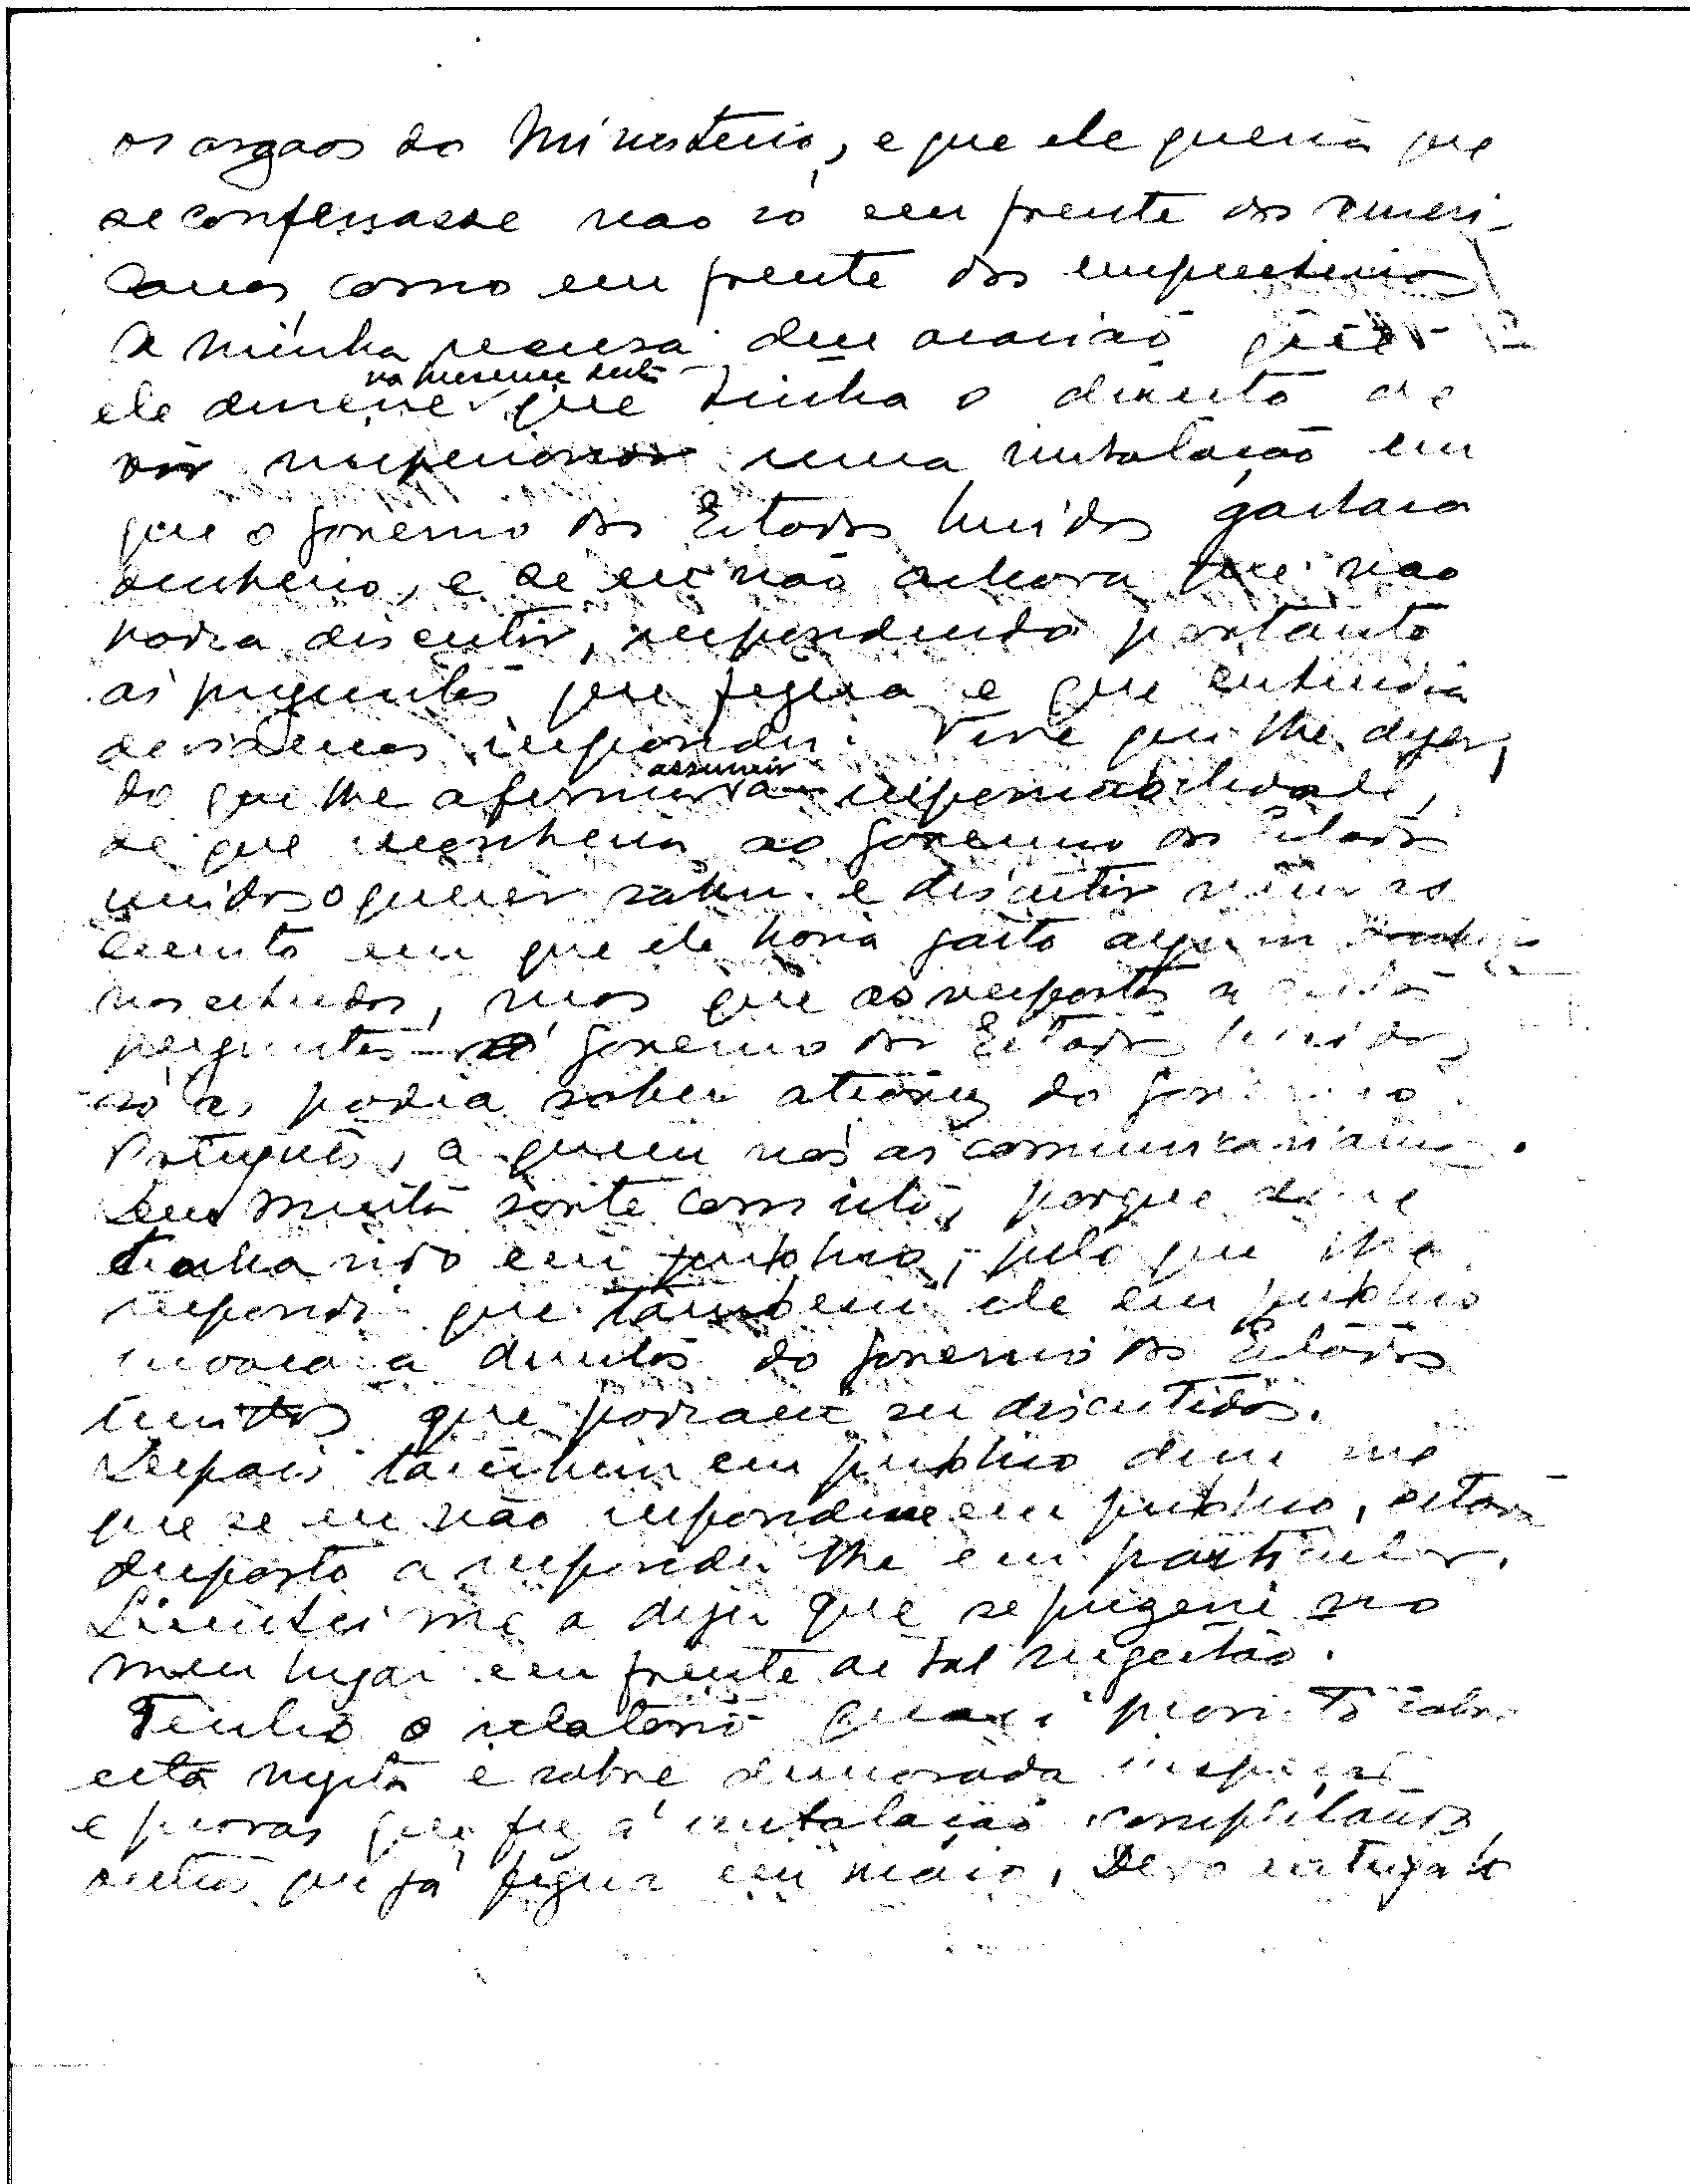 os orgaos do Ministerio, e que ele queria que
se confessasse não só em frente dos ameri-
canos como em frente dos empreiteiros
A minha recusa deu ocasião que
na presença destes
ele dissesse que tinha o direito de
ver uma instalação em
que o governo dos Estados Unidos gastara
dinheiro, e se eu não achava que não
podia discutir, respondendo portanto
ás preguntas que fizera e que entendia
deviamos responder. Tive que lhe dizer,
assumir
do que lhe afirmara a responsabilidade,
de que reconhecia ao governo dos Estados
Unidos o querer saber e discutir num as
sunto em que ele havia gasto algum dinheiro
nos estudos, mas que as respostas a
perguntas o governo dos Estados Unidos
só as podia saber através do governo
Português, a quem nós as comunicariamos.
Deu muita sorte com isto, porque disse
tinha sido em publico, pelo que lhe
respondi que tambem ele em publico
invocara direitos do governo dos Estados
Unidos que podiam ser discutidos.
Depois tambem em publico disse me
que se eu não respondesse em publico, estava
disposto a responder lhe em particular.
Limitei me a dizer que se puzesse no
meu lugar em frente de tal sugestão.
Tenho o relatorio quasi pronto sobre
esta visita e sobre demorada inspeção
e provas que fiz á instalação completando
outras que já fizera em maio. Devo entrega lo